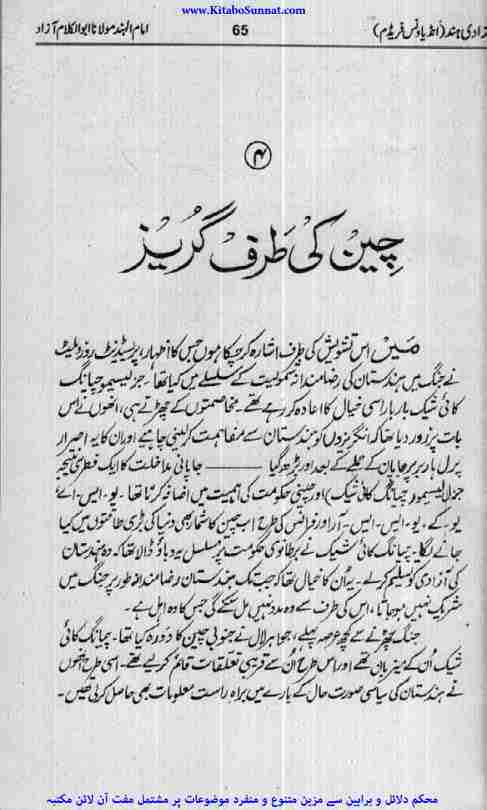 www.KitaboSunnat.com
زادی ہند (انڈیا ونس فریڈم) 65 امام الہند مولانا ابوالکلام آزاد
۴
چین کی طرف گریز
میں اس تشویش کی طرف اشارہ کر چکا ہوں جس کا اظہار، پریسیڈنٹ روزویلٹ
نے جنگ میں ہندستان کی رضامندانہ شمولیت کے سلسلے میں کیا تھا۔ جنرلیسیمو چیانگ
کائی شیک بار بار اسی خیال کا اعادہ کر رہے تھے۔ مخاصمتوں کے چھڑتے ہی، انھوں نے اس
بات پر زور دیا تھا کہ انگریزوں کو ہندستان سے مفاہمت کر لینی چاہیے اور ان کا یہ اصرار
پرل ہاربر پر جاپان کے حملے کے بعد اور بڑھ گیا ——— جاپانی مداخلت کا ایک فطری نتیجہ
جنرلیسیمو (چیانگ کائی شیک) اور چینی حکومت کی اہمیت میں اضافہ کرنا تھا۔ یو۔ ایس۔ اے،
یو۔ کے، یو۔ ایس۔ ایس۔ آر اور فرانس کی طرح اب چین کا شمار بھی دنیا کی بڑی طاقتوں میں کیا
جانے لگا۔ چیانگ کائی شیک نے برطانوی حکومت پر مسلسل یہ دباؤ ڈالا تھا کہ وہ ہندستان
کی آزادی کو تسلیم کر لے۔ یہ ان کا خیال تھا کہ جب تک ہندستان رضامندانہ طور پر جنگ میں
شریک نہیں ہو جاتا، اس کی طرف سے وہ مدد نہیں مل سکے گی جس کا وہ اہل ہے۔
جنگ چھڑنے سے کچھ عرصہ پہلے، جواہر لال نے جنوبی چین کا دورہ کیا تھا۔ چیانگ کائی
شیک ان کے میزبان تھے اور اس طرح ان سے قریبی تعلقات قائم کر لیے تھے۔ اسی طرح انھوں
نے ہندستان کی سیاسی صورت حال کے بارے میں براہ راست معلومات بھی حاصل کر لی تھیں۔
محکم دلائل و براہین سے مزین متنوع و منفرد موضوعات پر مشتمل مفت آن لائن مکتبہ